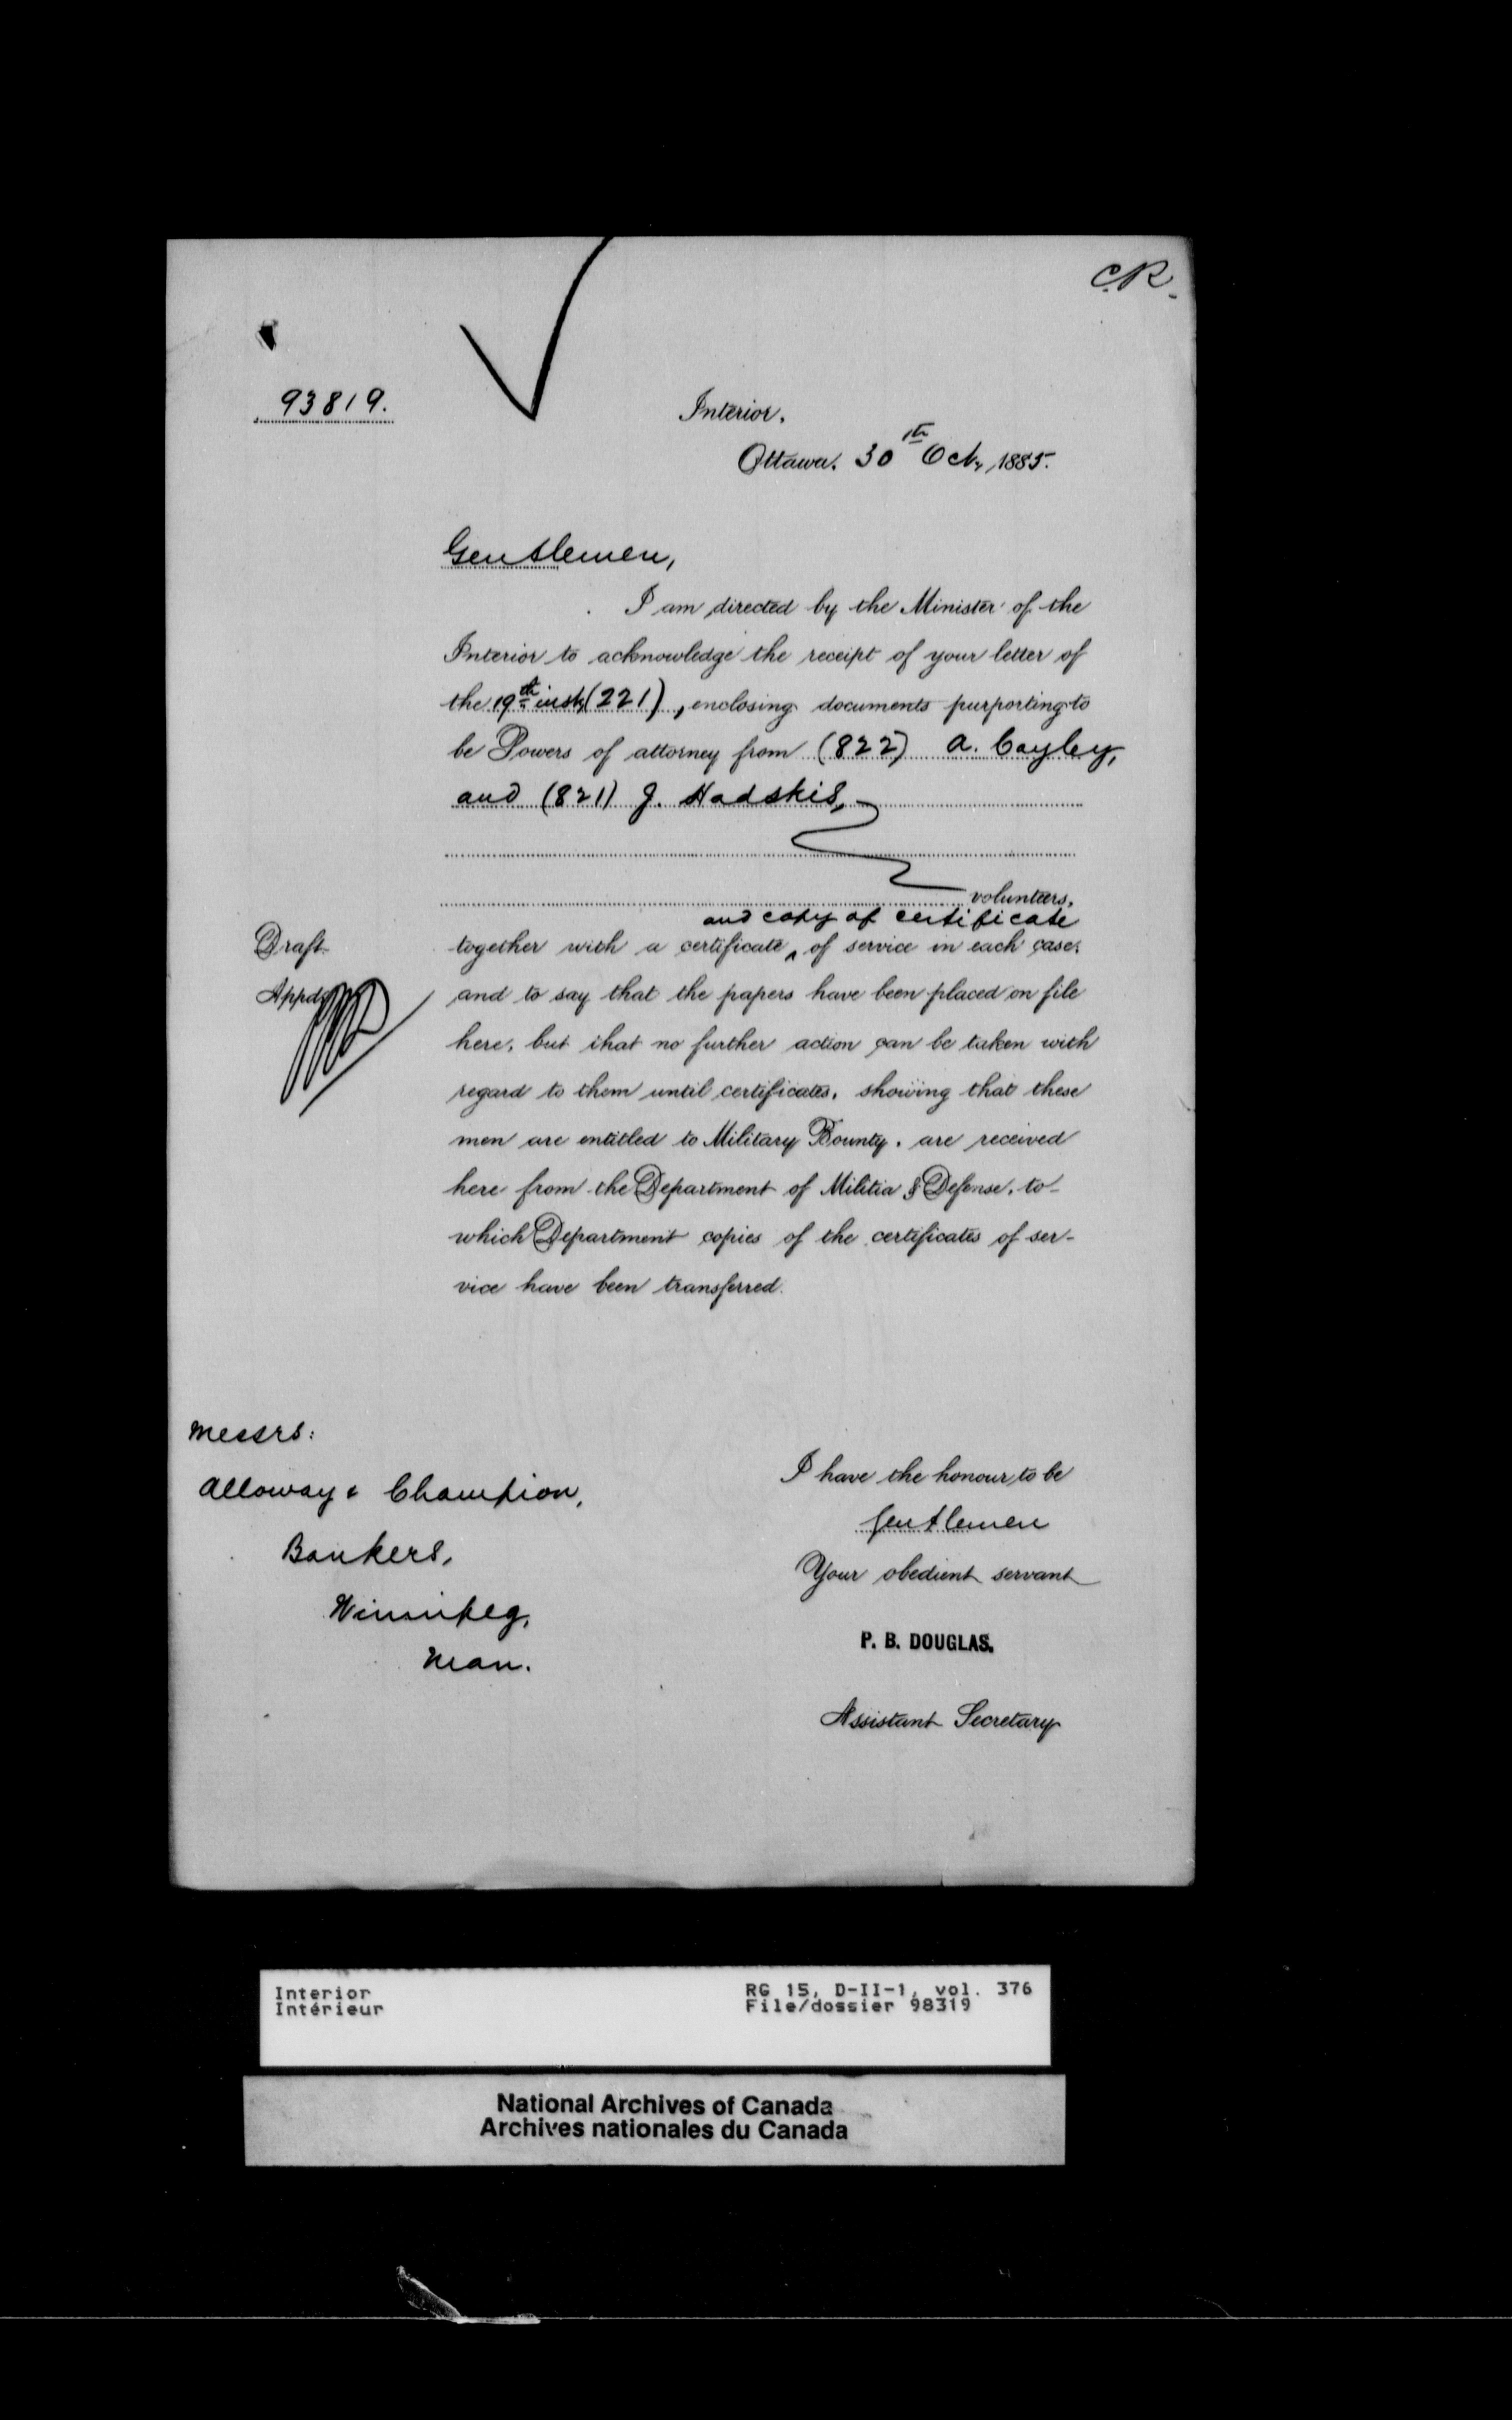 C.R.
93819.
Interior.
Ottawa. 30th Oct, 1885.
Gentlemen,
I am directed by the Minister of the
Interior to acknowledge the receipt of your letter of
the 19th inst (221), enclosing documents purporting to
be Powers of attorney from (822) A. Cayley,
and (821) J. Hadskis,
volunteers,
and copy of certificate
together with a certificate ^ of service in each case.
Draft
and to say that the papers have been placed on file
Appd
here, but that no further action can be taken with
regard to them until certificates, showing that these
men are entitled to Military Bounty, are received
here from the Department of Militia & Defense, to
which Department copies of the certificates of ser-
vice have been transferred.
Messrs:
Alloway & Champion,
Bankers,
Winnipeg,
Man.
I have the honour to be
Gentlemen
Your obedient servant
P. B. DOUGLAS.
Assistant Secretary
Interior
Intérieur
RG 15, D-II-1, vol. 376
File/dossier 98319
National Archives of Canada
Archives nationales du Canada